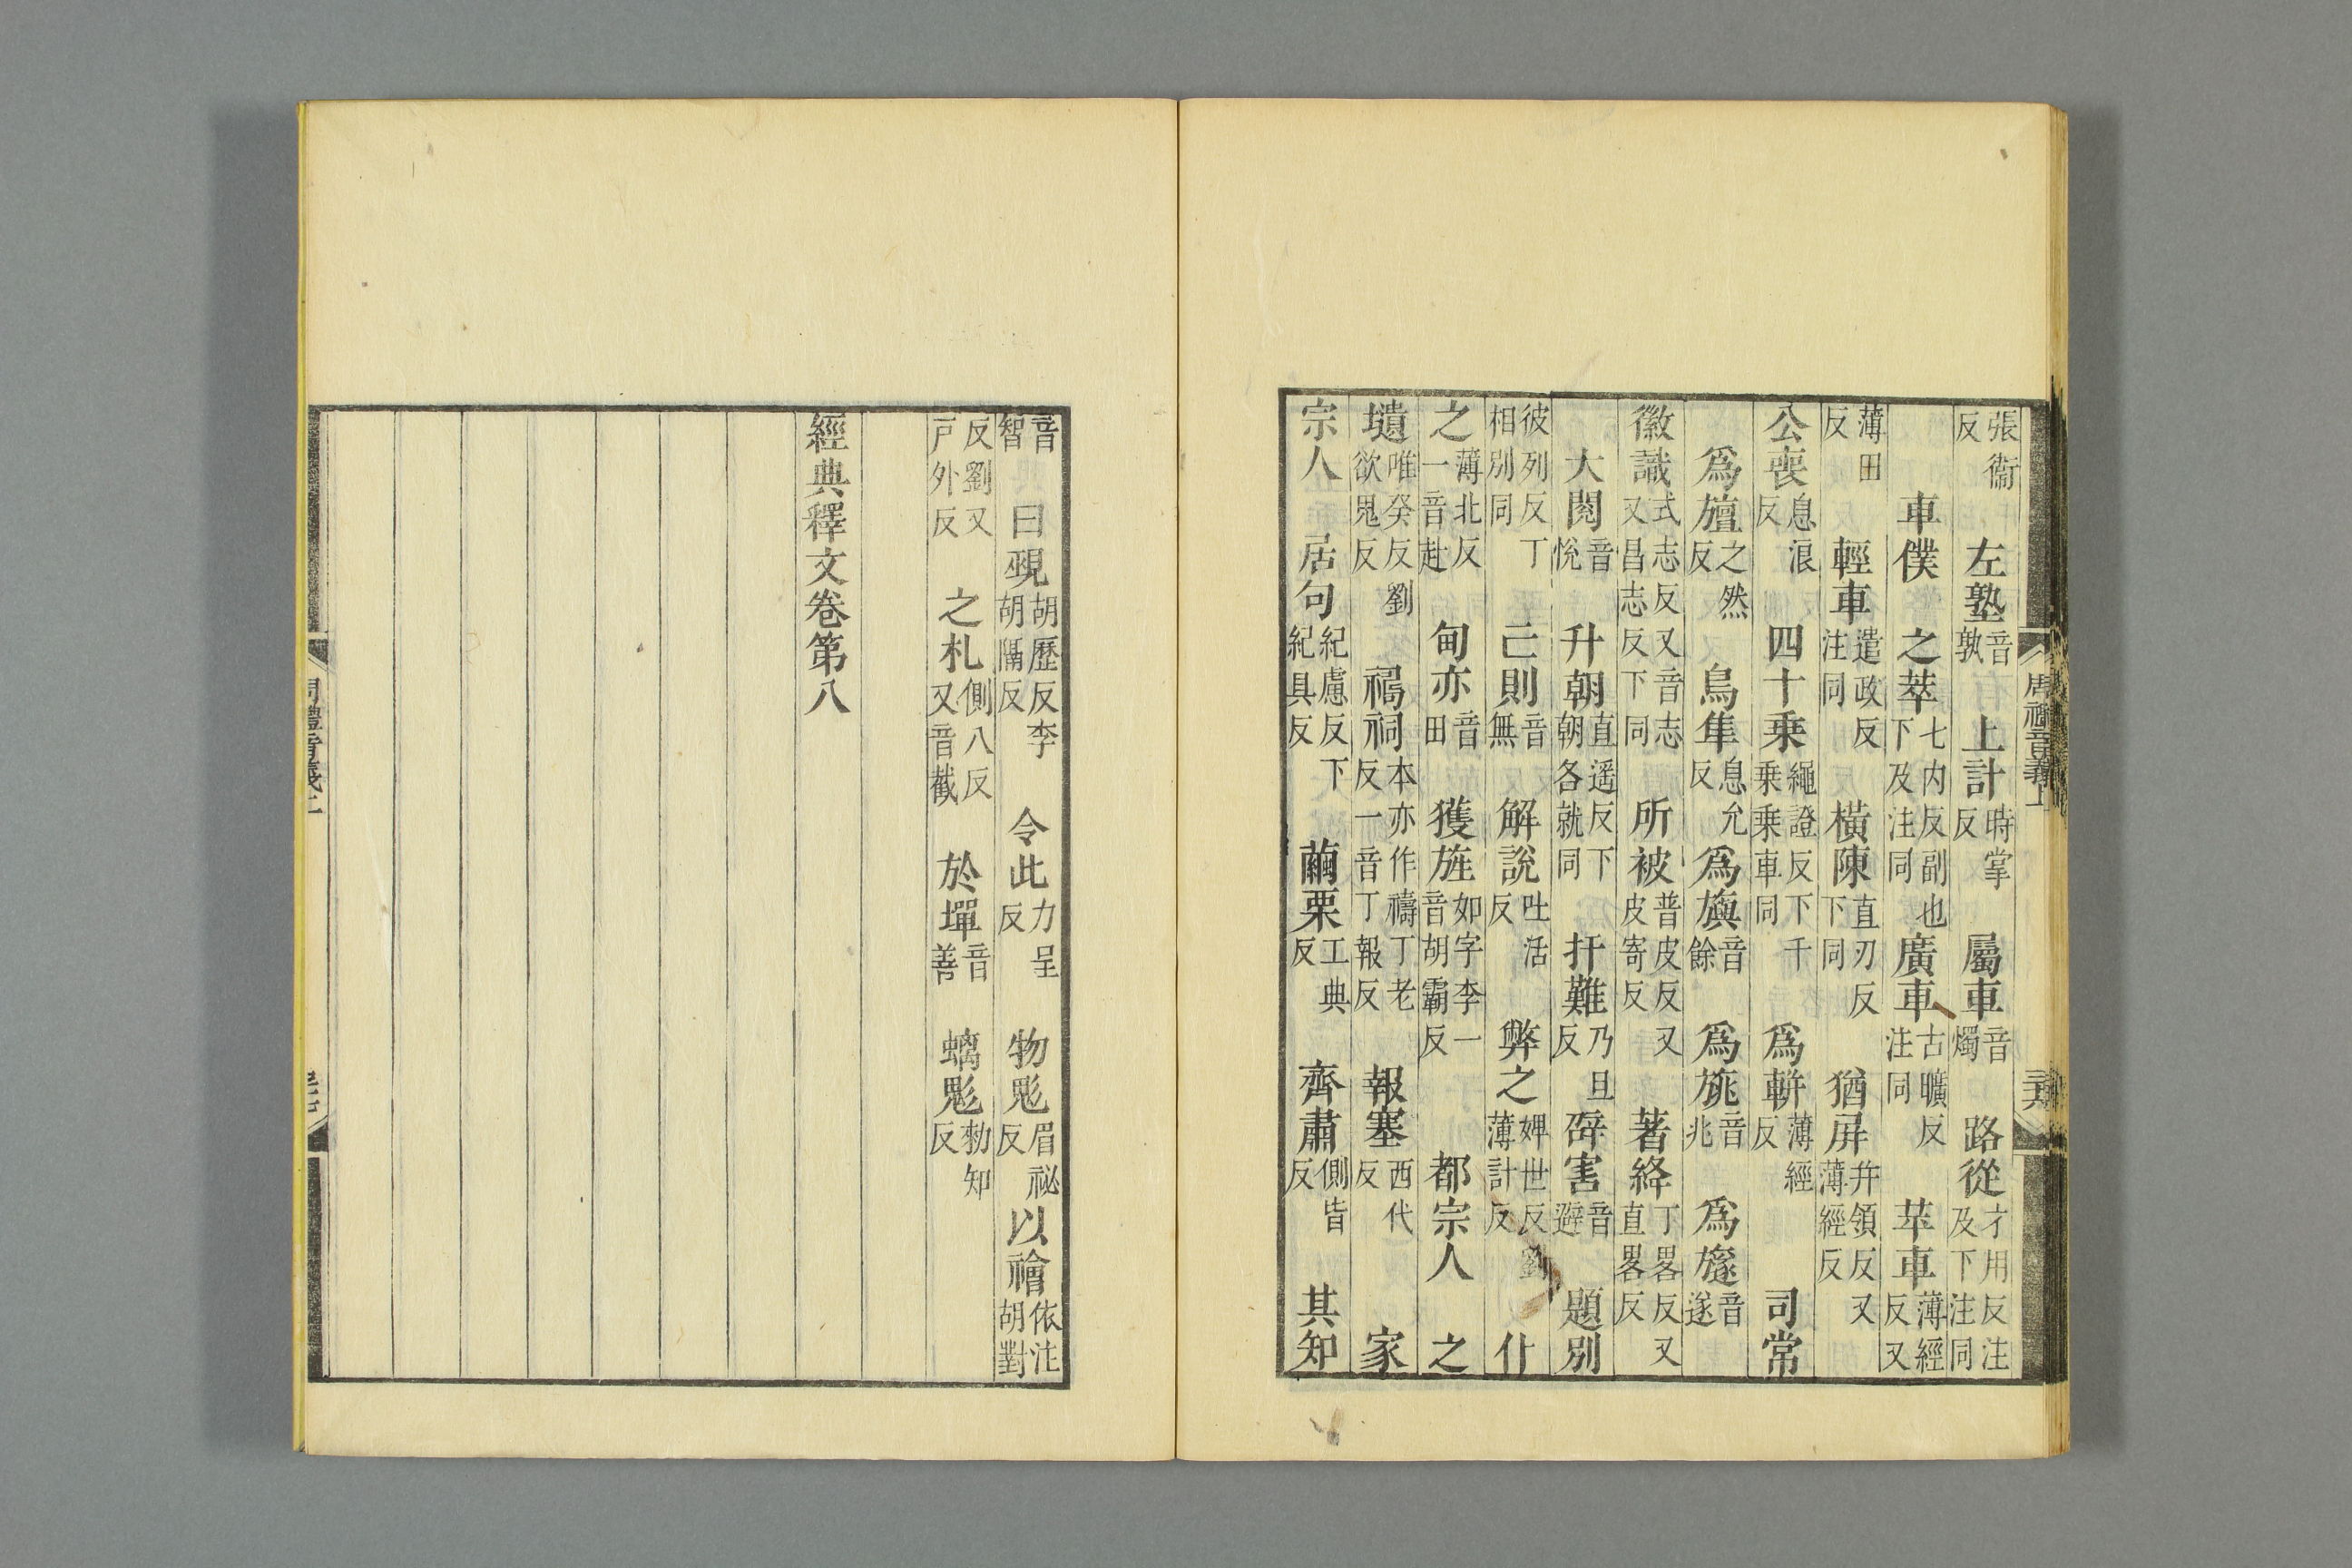 張衞反　左塾音孰　上計時掌反　屬車音燭　路從才用反注及下注同
車僕　之萃七内反副也下及注同　廣車古曠反注同　苹車薄經反又
薄田反　輕車遣政反注同　橫陳直刃反下同　猶屏幷領反又薄經反
公喪息浪反　四十乗繩證反下千乗乗車同　爲軿薄經反　司常
爲旜之然反　鳥隼息允反　爲旟音餘　爲旐音兆　爲旞音遂
徽識式志反又音志又昌志反下同　所被普皮反又皮寄反　著絳丁畧反又直畧反
大閱音恱　升朝直遥反下朝各就同　扞難乃旦反　辟害音避　題別
彼列反丁相別同　已則音無　解說吐活反　弊之婢世反劉薄計反　什
之薄北反一音赴　甸亦音田　獲旌如字李一音胡霸反　都宗人　之
壝唯癸反劉欲鬼反　禂祠本亦作禱丁老反一音丁報反　報塞西代反　家
宗人　居句紀慮反下紀具反　繭栗工典反　齊肅側皆反　其知
周禮音義上
音智　曰覡胡歷反李胡隔反　令此力呈反　物鬽眉祕反　以禬依注胡對
反劉又戸外反　之札側八反又音截　於墠音善　螭鬽勑知反
經典釋文卷第八
周禮音義上